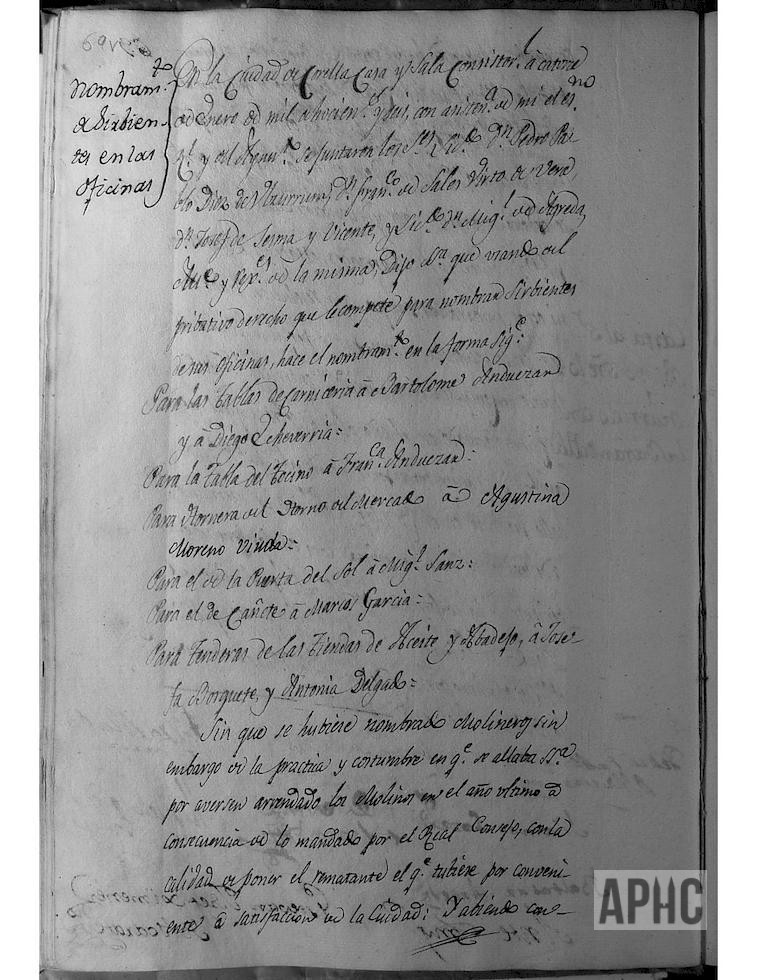 Nombram.to
de Sirbien-
tes en las
oficinas
En la Ciudad de Corella Casa y Sala Consistor.l à catorce
de Enero de mil ochocien.s y seis, con asisten.a de mi el es.no
R.l y del Ayun.to se juntaron los S.res Lic.do D.n Pedro Pa-
blo Diez de Ulzurrun, D.n Fran.co de Sales Virto de Vera,
D.n Josef de Sesma y Vicente, y Lic.do D.n Mig.l de Agreda,
Alc.e y Rex.es de la misma; Dijo S.S.a que usando del
pribatibo derecho que le compete para nombrar Sirbientes
de sus oficinas, hace el nombram.to en la forma sig.te
Para las Tablas de Carniceria â Bartolome Anduezar
y â Diego Echeverria=
Para la Tabla del Tocino â Fran.ca Anduezar:
Para Hornera del Horno del Mercado â Agustina
Moreno Viuda=
Para el de la Puerta del Sol â Mig.l Sanz:
Para el de Cañete â Marcos Garcia=
Para tenderas de las tiendas de Aceite y Abadejo, â Jose-
fa Borquete, y Antonia Delgado=
Sin que se hubiese nombrado Molineros sin
embargo de la practica y costumbre en q.e se allaba S.S.a
por aversen arrendado los Molinos en el año ultimo â
consecuencia de lo mandado por el Real Consejo, con la
calidad de poner el rematante el q.e tubiese por conveni-
ente â satisfaccion de la Ciudad: Yabiendo con-
APHC